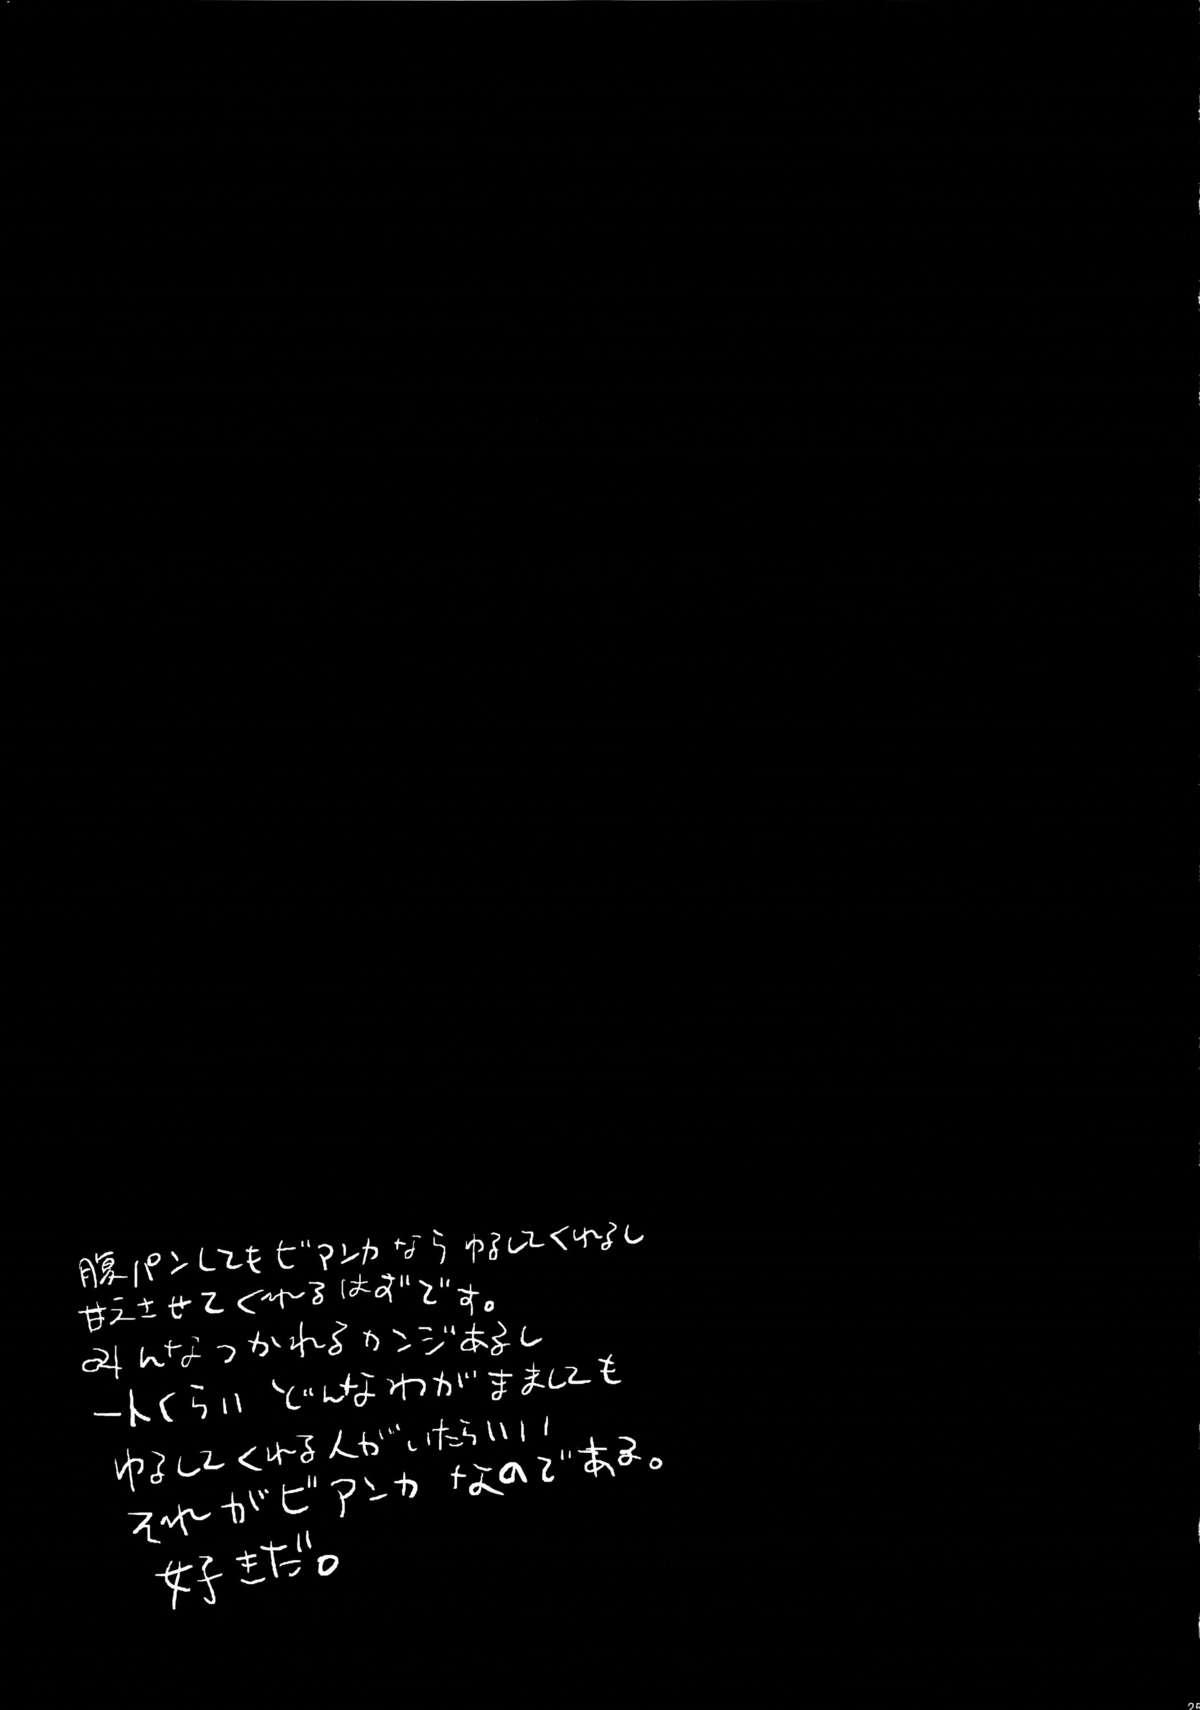 腹パンしてもビアンカなら ゆるしてくれるし
甘えさせてくれるはずです。
みんなつかれるカンジあるし
一人くらい どんなわがまましても
ゆるしてくれる人がいたらいいし
それがビアンカ なのである。
好きだ。
25